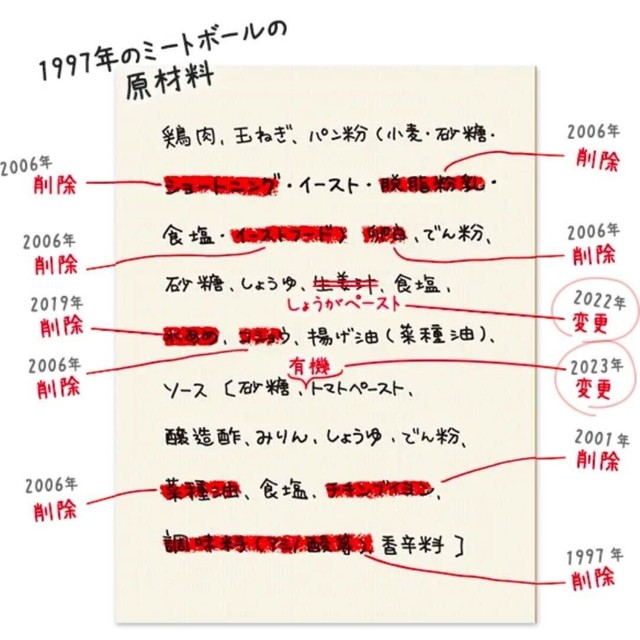 1997年のミートボールの
原材料
鶏肉、玉ねぎ、パン粉（小麦・砂糖・
2006年
削除
2006年
削除
ショートニング・イースト・脱脂粉乳・
2006年
削除
食塩・イーストフード）卵白、でん粉、
2006年
削除
砂糖、しょうゆ、生姜汁、食塩、
しょうがペースト
2022年
変更
2019年
削除
水あめ、コショウ、揚げ油（菜種油）、
2006年
削除
有機
2023年
変更
ソース〔砂糖、トマトペースト、
醸造酢、みりん、しょうゆ、でん粉、
2001年
削除
2006年
削除
菜種油、食塩、チキンブイヨン、
調味料（アミノ酸等）、香辛料〕
1997年
削除